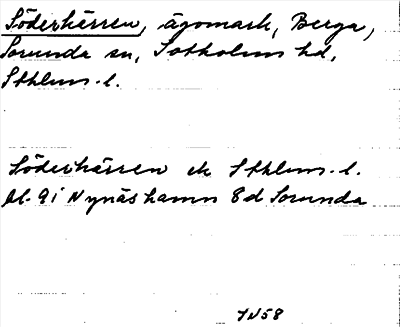 Söderkärren, ägomark, Berga,
Sorunda sn, Sotholms hd,
Sthlms. l.
Söderkärren ek Sthlms. l.
bl. 9i Nynäshamn 8d Sorunda
JN58